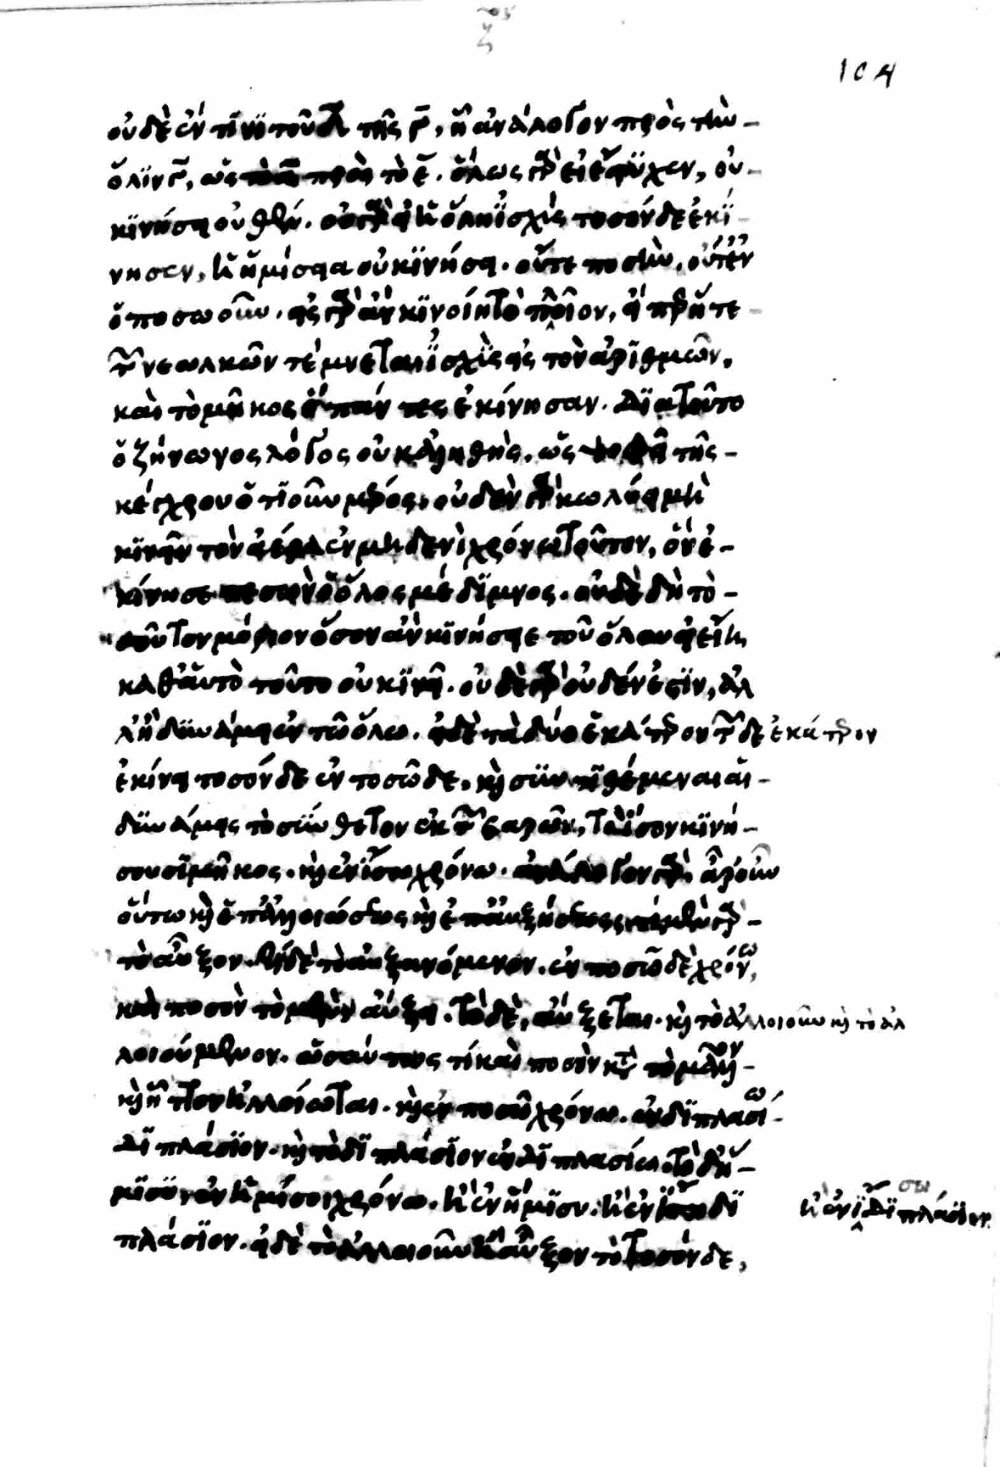 104
οὐδὲ ἔν τινι τοῦ Δ τῆς Γ, ἢ ἀνάλογον πρὸς τὴν
ὅλην Γ, ὡς τὸ πρὸς τὸ Ε. ὅλως γὰρ εἰ ἔτυχεν, οὐ
κινήσει οὐθέν. οὐ γὰρ εἰ ἡ ὅλη ἰσχὺς τοσόνδε ἐκί
νησεν, ἡ ἡμίσεια οὐ κινήσει. οὔτε ποσὴν, οὔτ' ἐν
ὁποσωοῦν. εἷς γὰρ ἂν κινοίη τὸ πλοῖον, εἴπερ ἥ τε
τῶν νεωλκῶν τέμνεται ἰσχὺς εἰς τὸν ἀριθμὸν,
καὶ τὸ μῆκος ὃ πάντες ἐκίνησαν. διὰ τοῦτο
ὁ ζήνωνος λόγος οὐκ ἀληθὴς, ὡς ψοφεῖ τῆς
κέγχρου ὁτιοῦν μέρος. οὐδὲν γὰρ κωλύει μὴ
κινεῖν τὸν ἀέρα ἐν μηδενὶ χρόνω τοῦτον, ὃν ἐ
κίνησε πεσὼν ὁ ὅλος μέδιμνος. οὐδὲ δὴ το
σοῦτον μόριον ὅσον ἂν κινήσειε τοῦ ὅλου εἰ εἴη
καθ' αὑτὸ τοῦτο οὐ κινεῖ. οὐδὲ γὰρ οὐδέν ἐστιν, ἀλ
λ' ἢ δυνάμει ἐν τῶ ὅλω. εἰ δὲ τὰ δύο ἑκάτερον τῶνδε ἑκάτερον
ἐκίνει τοσόνδε ἐν τοσῶδε, καὶ συντιθέμεναι αἱ
δυνάμεις τὸ σύνθετον ἐκ τῶν βαρῶν, τὸ ἴσον κινή
σουσι μῆκος. καὶ ἐν ἴσω χρόνω. ἀνάλογον γὰρ. ἆρ' οὖν
οὕτω καὶ ἐπ' ἀλλοιώσεως καὶ ἐπ' αὐξήσεως, τὶ μὲν γὰρ
τὸ αὖξον. τὶ δὲ τὸ αὐξανόμενον. ἐν ποσῶ δὲ χρόνω,
καὶ ποσὸν τὸ μὲν αὔξει. τὸ δὲ, αὔξεται. καὶ τὸ ἀλλοιοῦν καὶ τὸ ἀλ
λοιούμενον. ὡσαύτως τί καὶ ποσὸν κατὰ τὸ μᾶλλον
καὶ ἧττον ἠλλοίωται. καὶ ἐν ποσῶ χρόνω. ἐν διπλασίω
διπλάσιον. καὶ τὸ διπλάσιον ἐν διπλασίω. τὸ δ' ἥ
μισυ, ἐν ἡμίσει χρόνω. ἢ ἐν ἡμίσει. ἢ ἐν ἴσω δι
πλάσιον. εἰ δὲ τὸ ἀλλοιοῦν ἢ αὖξον τὸ τοσόνδε,
ἢ ἐν ἴσω διπλάσιον